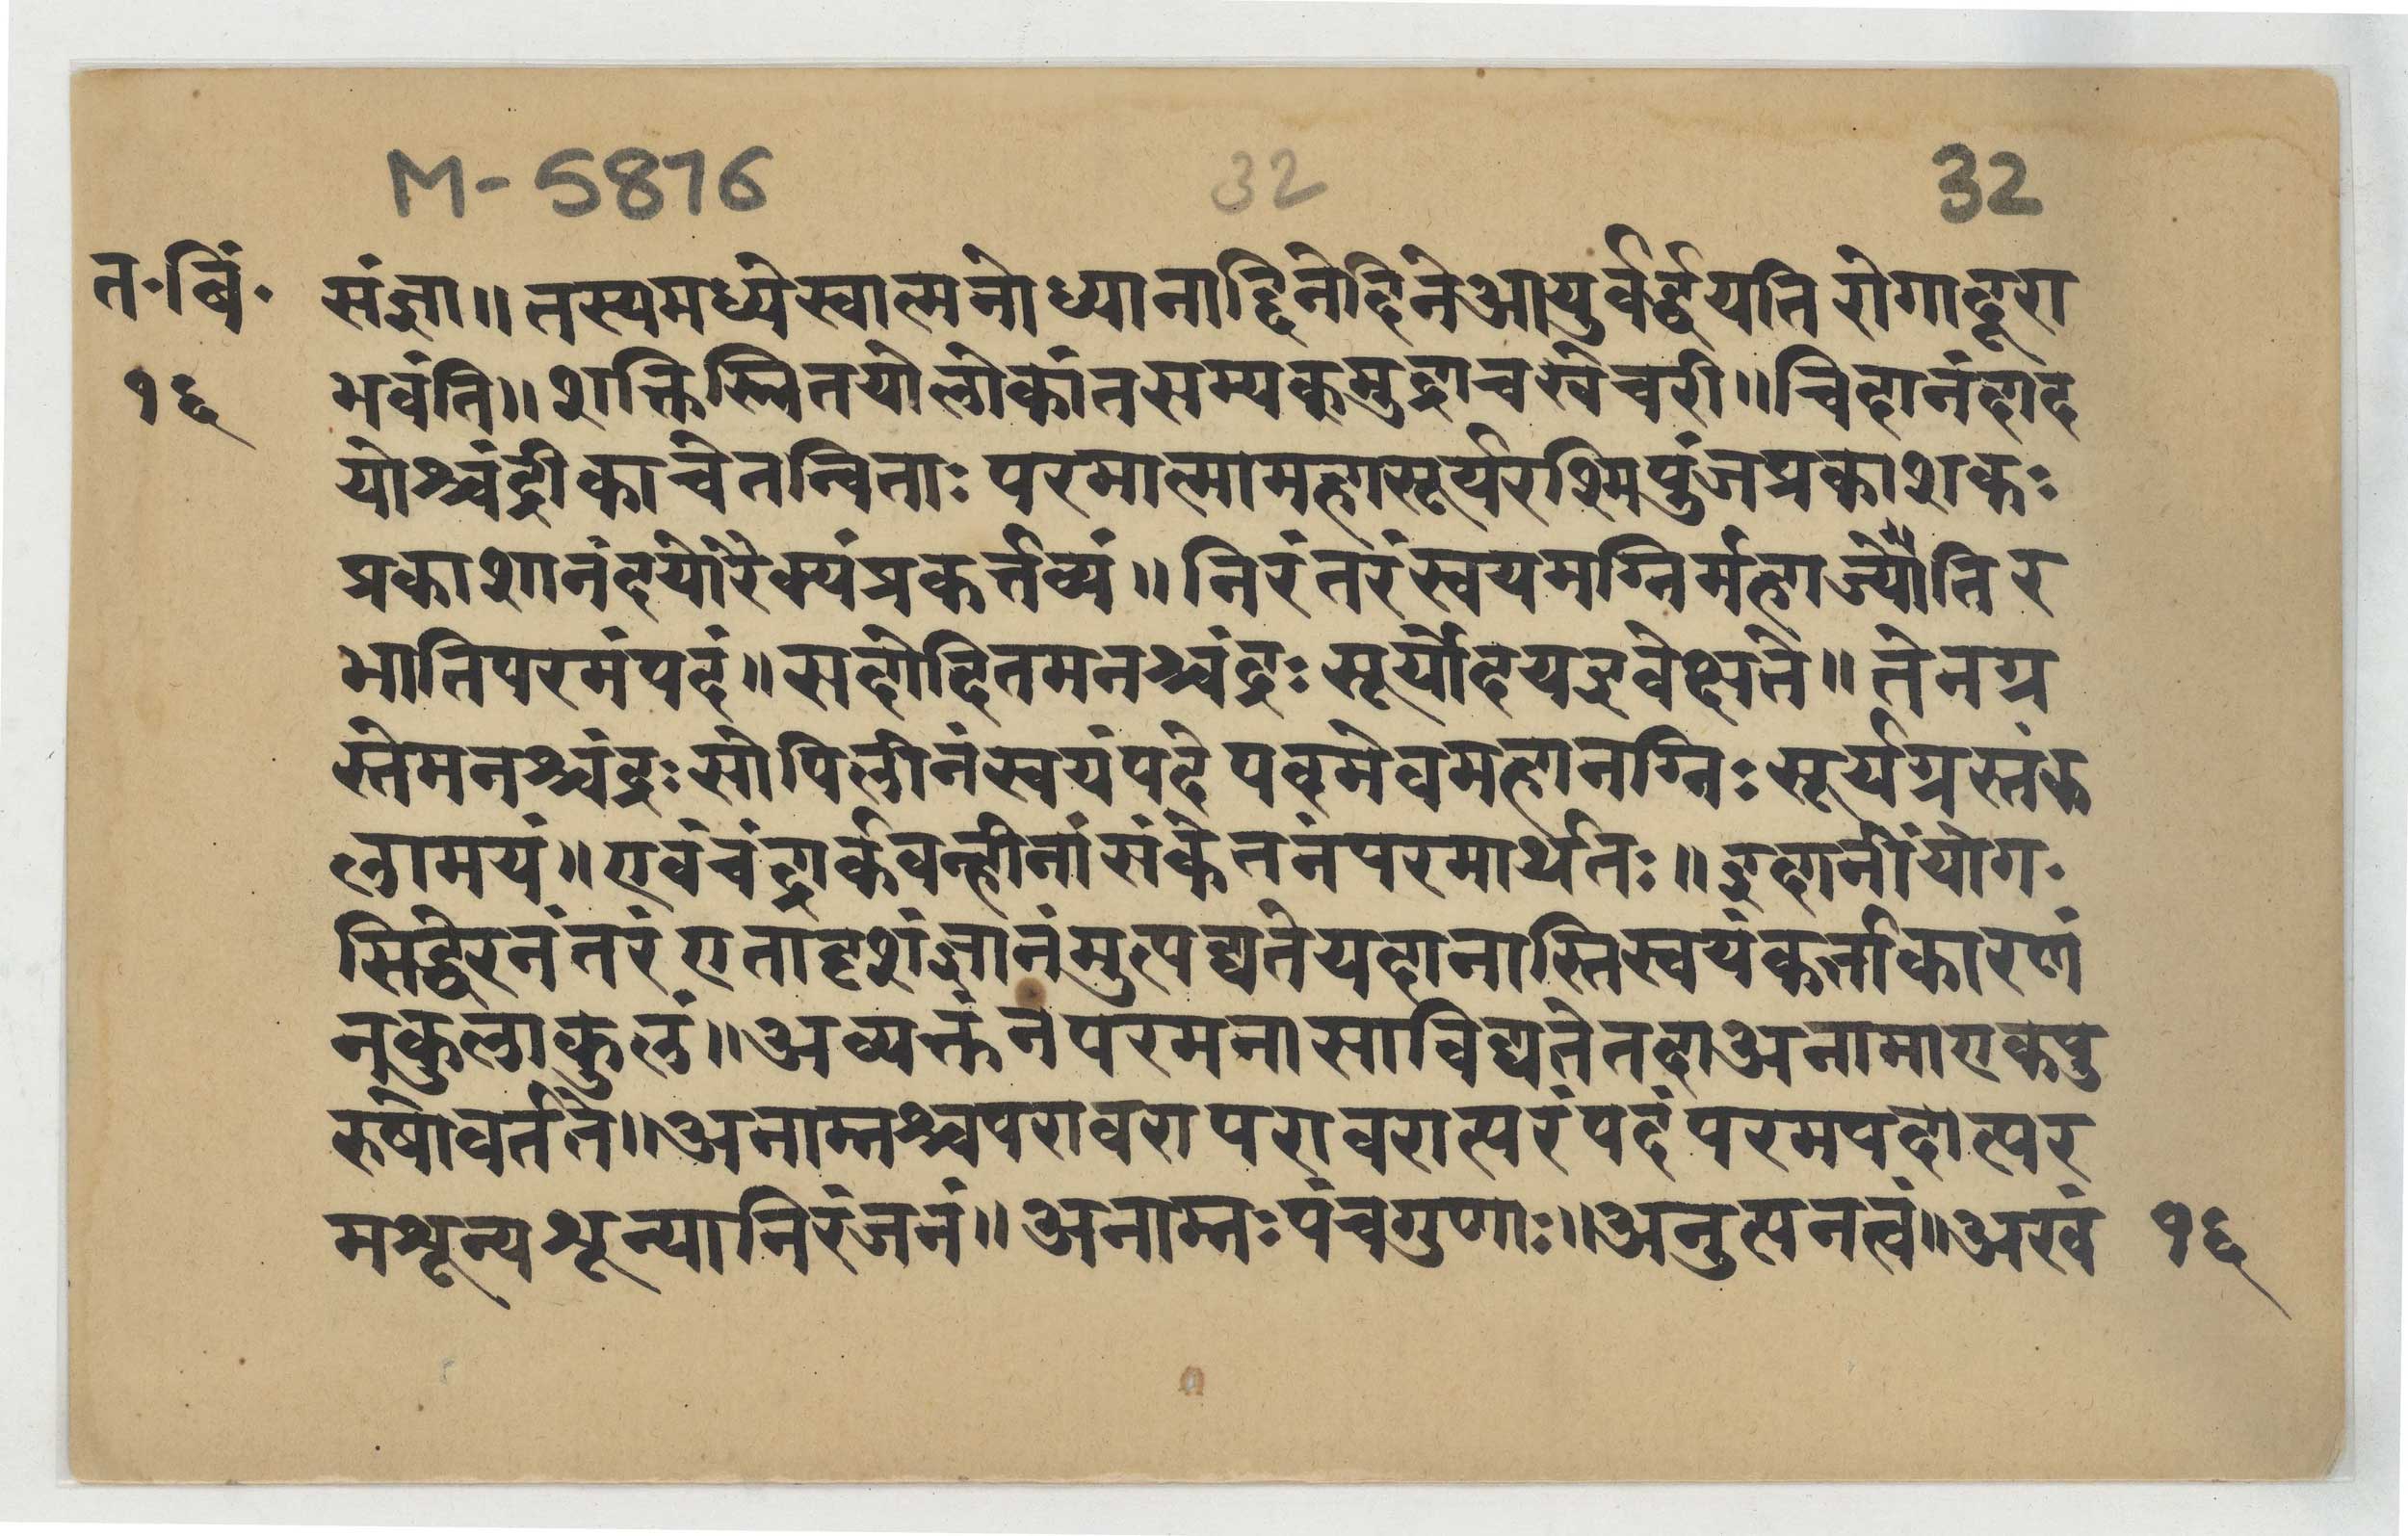 M-5876 32 32
त॰बिं॰
१६
संज्ञा॥तस्यमध्येस्वात्मनोध्यानाद्दिनेदिनेआयुर्वर्द्धयतिरोगादूरा
भवंति॥शक्तिस्त्रितयोलोकांतसम्यकमुद्राचखेचरी॥चिदानंदोद
योश्चंद्रीकाचेतन्विताःपरमात्मामहासूर्यरश्मिपुंजप्रकाशकः
प्रकाशानंदयोरैक्यंप्रकर्त्तव्यं॥निरंतरंस्वयमग्निर्महाज्यौतिर
भातिपरमंपदं॥सदोदितमनश्चंद्रःसूर्योदयइवेक्षते॥तेनग्र
स्तेमनश्चंद्रःसोपिलीनंस्वयंपदेपवमेवमहानग्निःसूर्यग्रस्तंक
लामयं॥एवंचंद्रार्कवन्हीनांसंकेतनंपरमार्थतः॥इदानींयोग॰
सिद्धेरनंतरंएतादृशंज्ञानंमुत्पद्यतेयदानास्तिस्वयंकर्ताकारणं
नकुलाकुलं॥अव्यक्तंनपरमनासाविद्यतेतदाअनामाएकपु
रुषोवर्तते॥अनाम्नश्चपरावरापरावरात्परंपदंपरमपदात्पर
मशून्यशून्यानिरंजनं॥अनाम्नःपंचगुणाः॥अनुत्पनत्वं॥अखं
१६